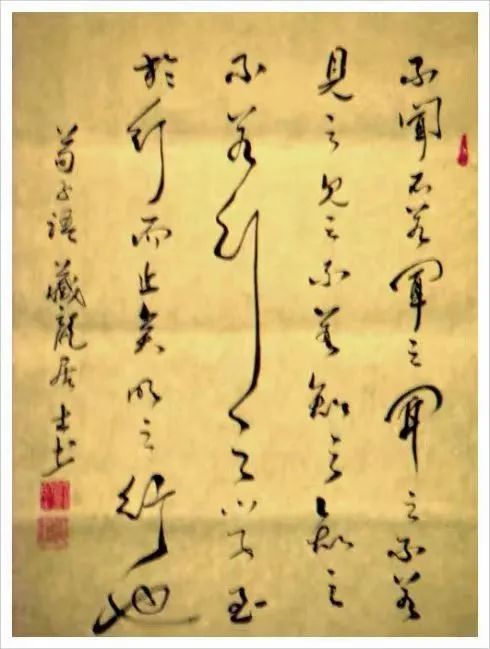 不聞不若聞之聞之不若
見之見之不若知之知之
不若行之學至
於行而止矣明之行也
荀子語藏龍居士书